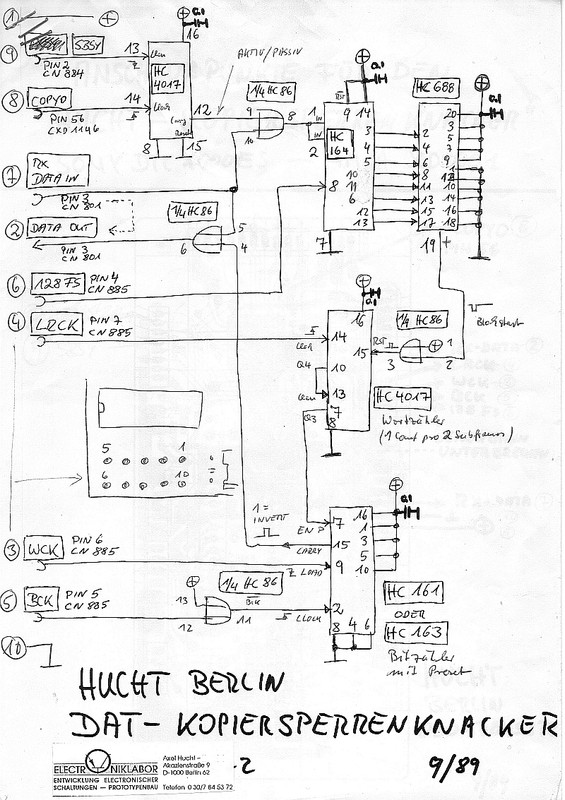 1 +
16
0,1
9 SBSY 13
PIN 2
CN 884
HC
4017
AKTIV/PASSIV
8 COPYO 14
PIN 56
CXD 1146
12
8 13 15
1/4 HC86
9
10
8
1
IN
IN
2
HC
164
9 14
0,1
3
4
5
6
10
11
12
13
8
7
HC688
20
0,1
2
4
6
8
11
13
15
17
3
5
7
9
1
12
10
14
16
18
19
7 RX
DATA IN
PIN 3
CN 801
2 DATA OUT
PIN 3
CN 801
1/4 HC86
5
6 4
6 128FS PIN 4
CN 885
4 LRCK PIN 7
CN 885
16
0,1
14
10
13
7
8
15
Q4
Q3
RST
1/4 HC86
3
1
2
Blockstart
HC4017
Wortzähler
(1 Count pro 2 Subframes)
5 1
6 10
1 =
INVERT
EN P 7
CARRY 15
LOAD 9
2
8 4 6
16
1
3
5
10
0,1
3 WCK PIN 6
CN 885
5 BCK PIN 5
CN 885
13
12
1/4 HC86
11
BCK
CLOCK
HC 161
ODER
HC 163
Bitzähler
mit Preset
10
HUCHT BERLIN
DAT-KOPIERSPERRENKNACKER
2 9/89
ELECTRONIKLABOR
ENTWICKLUNG ELECTRONISCHER
SCHALTUNGEN – PROTOTYPENBAU
Axel Hucht -
Akazienstraße 9
D-1000 Berlin 62
Telefon 0 30/7 84 53 72